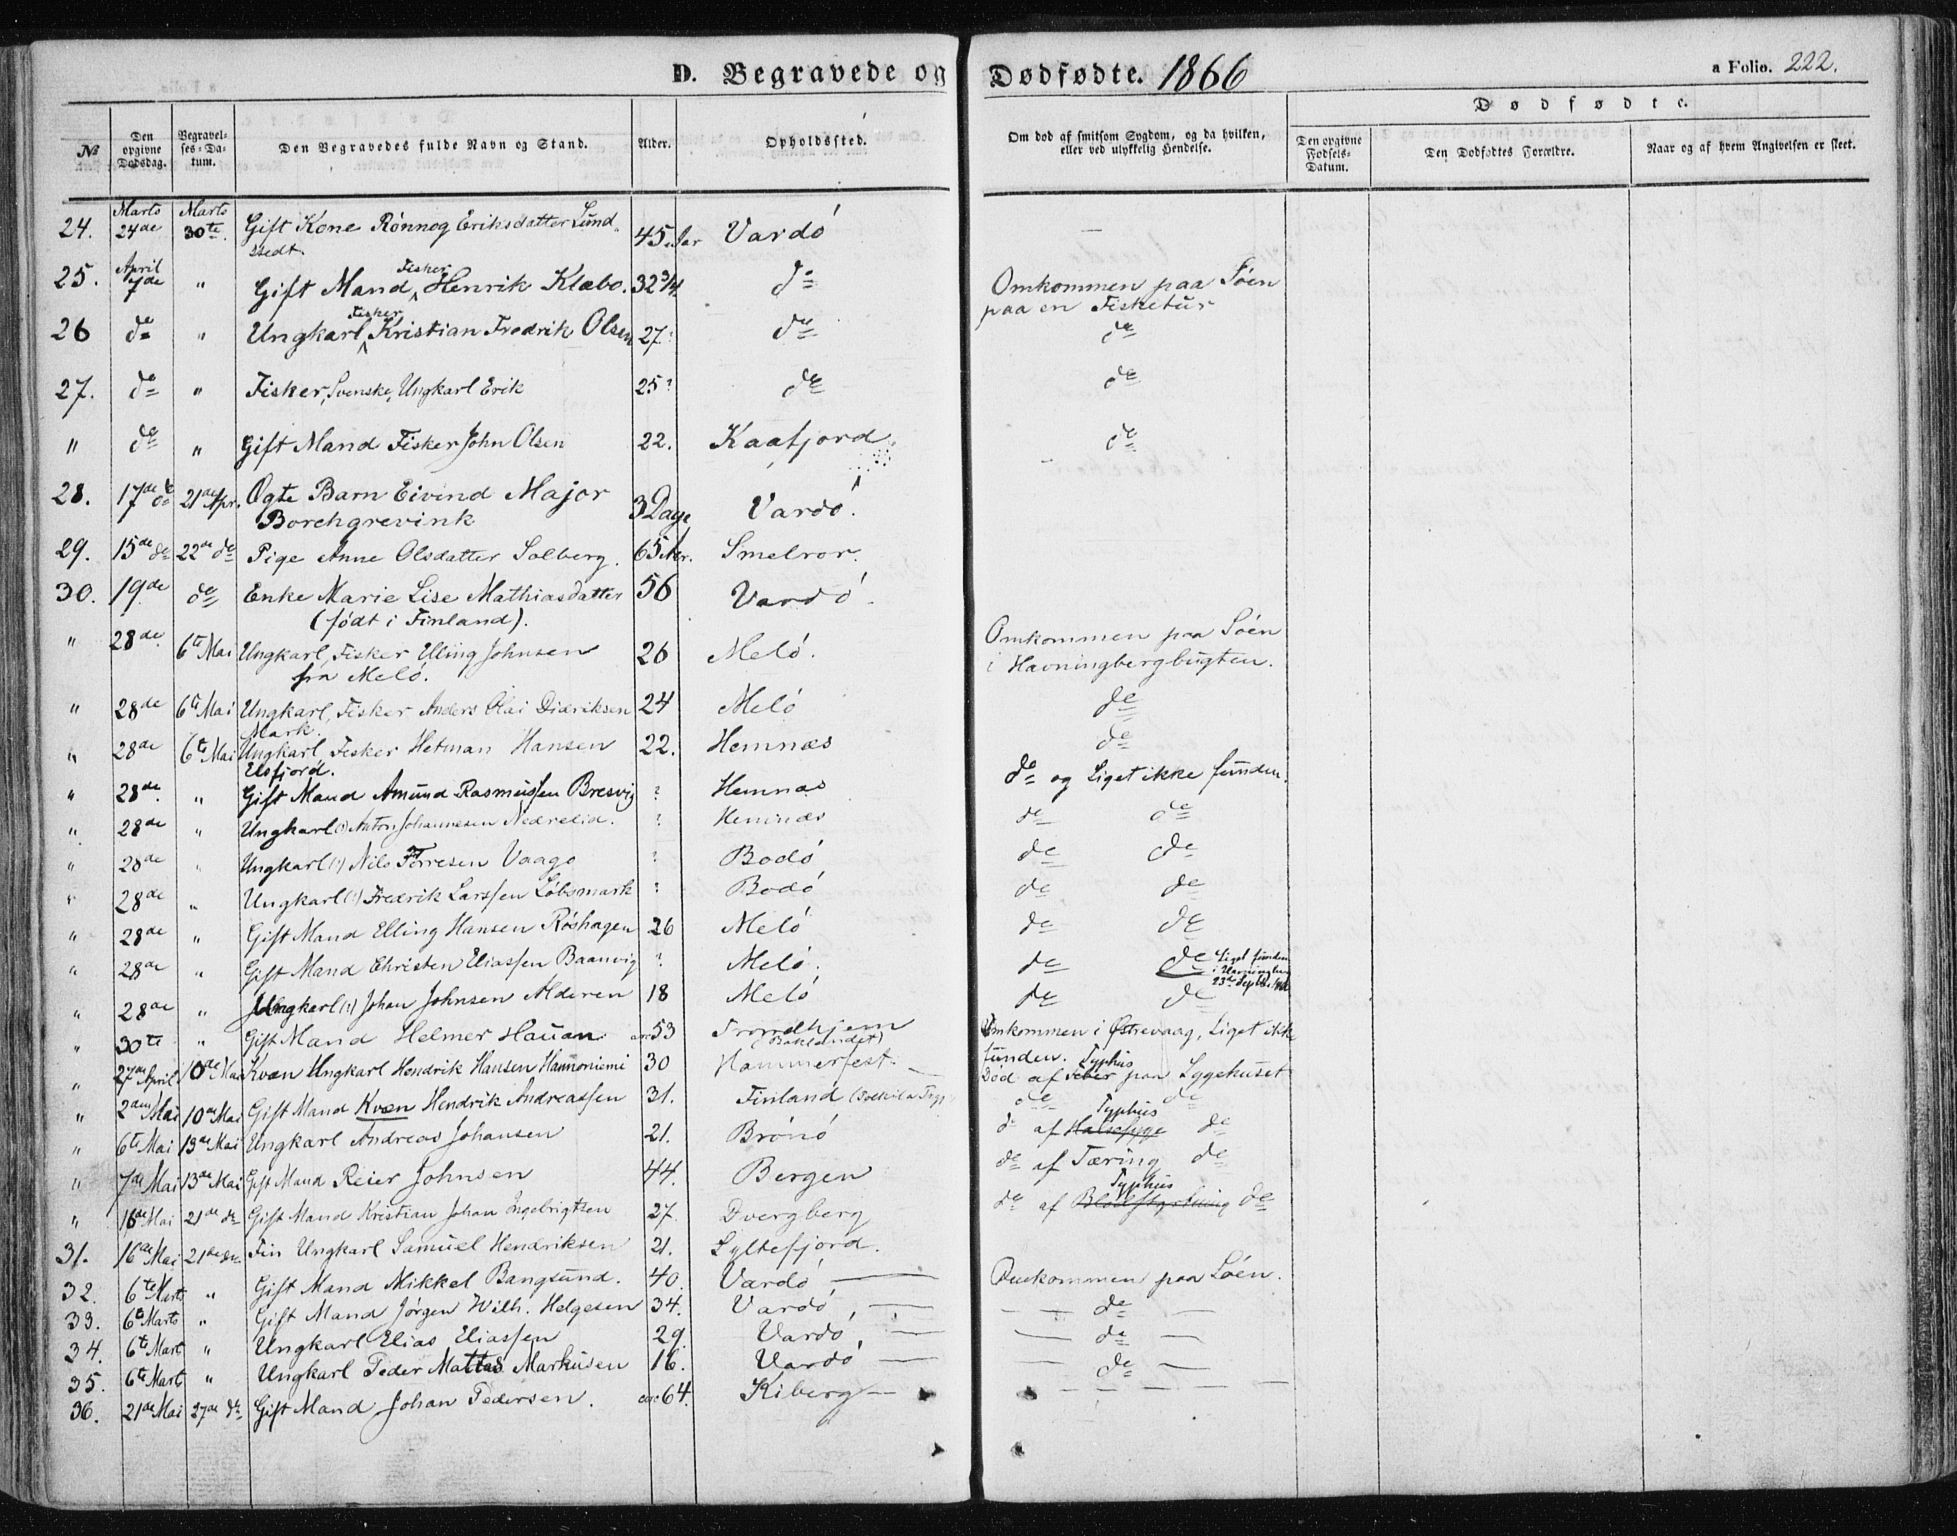 D. Begravede og Dødfødte. 1866 a Folio. 222.
Dødfødte.
No
Den opgivne Dødsdag.
Begravelses-Datum.
Den Begravedes fulde Navn og Stand.
Alder.
Opholdssted.
Om død af smitsom Sygdom, og da hvilken, eller ved ulykkelig Hendelse.
Den opgivne Fødsels-Datum.
Den Dødfødtes Forældre.
Naar og af hvem Angivelsen er skeet.
24. Marts 24de Marts 30te. Gift Kone Rønnog Eriksdatter Lund- 45 Aar Vardö —
stedt.
25. April 7de " Gift Mand, Fisker Henrik Klæbo. 32 3/4. do Omkommen paa Söen
paa en Fisketur
26 do " Ungkarl, Fisker Kristian Fredrik Olsen 27? do do
27. do " Fisker, Svenske, Ungkarl Erik 25? do do
" do " Gift Mand Fisker John Olsen 22. Kaafjord do
28. 17de do 21de Apr. Ogte Barn Eivind Major 3 Dage Vardö.
Borchgrevink
29. 15de do 22de do Pige Anne Olsdatter Solberg. 65 Aar. Smelror.
30. 19de do Enke Marie Lise Mathiasdatter 56 Vardö.
(født i Finland).
" 28de 6te Mai Ungkarl, Fisker Elling Johnsen 26 Melö. Omkommen paa Söen
fra Melö. i Havningbergbugten.
" 28de 6te Mai Ungkarl, Fisker Anders Olai Didriksen 24 Melö do
Mark.
" 28de 6te Mai Ungkarl Fisker Hetman Hansen 22. Hemnæs do
Elsfjord.
" 28de. " Gift Mand Amund Rasmussen Bresvig ? Hemnæs do og Liget ikke funden.
" 28de " Ungkarl (?) Anton Johannesen Nedrelid. ? Hemnæs do do
" 28de " Ungkarl (?) Nils Torresen Vaago ? Bodö do do
" 28de " Ungkarl (?) Fredrik Larssen Löbsmark ? Bodö do do
" 28de " Gift Mand Elling Hansen Röshagen 26 Melö do do
" 28de " Gift Mand Christen Eliassen Baanvig ? Melö. do do Liget funden
23de Septbr.
" 28de " Ungkarl (?) Johan Johnsen Alderen 18 Melö do do
" 30te " Gift Mand Helmer Hauan 53 Trondhjem Omkommen i Østrevaag, Liget ikke
(Baklandet) funden.
" 27de April 10de Mai Kvæn Ungkarl Hendrik Hansen Hannoniemi 30 Hammerfest — Død af Typhus feber paa Sygehuset
" 2den Mai 10de Mai Gift Mand Kvæn Hendrik Andreassen 31. Finland do do
" 6te Mai 13de Mai Ungkarl Andreas Johansen 21. Brönö do af Typhus Halssyge do
" 7de Mai 13de Mai Gift Mand Reier Johnsen 44. Bergen do af Tæring do
" 16de Mai 21de do Gift Mand Kristian Johan Ingebrigtsen 27. Dvergberg do af Typhus Blodstyrtning do
31. 16de Mai 21de do Fin Ungkarl Samuel Hendriksen 21. Syltefjord.
32. 6te Marts " Gift Mand Mikkel Bangsund. 40. Vardö — Omkommen paa Söen.
33. 6te Marts " Gift Mand Jørgen Wilh. Helgesen 34. Vardö, — — — do —
34. 6te Marts " Ungkarl Elias Eliassen 29 Vardö, — — do —
35. 6te Marts " Ungkarl Peder Mattes Markusen 16. Vardö — — do —
36. 21de Mai 27de do Gift Mand Johan Pedersen. 64. Kiberg — — — — — —